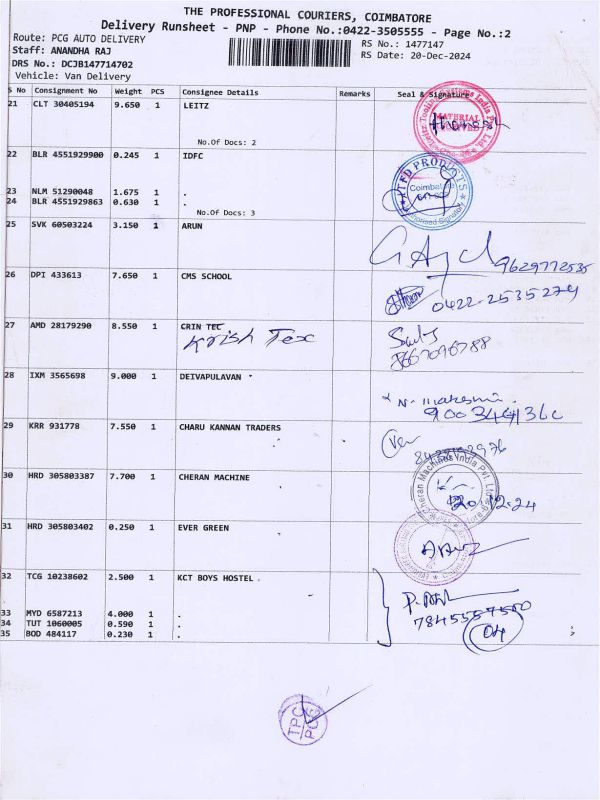 THE PROFESSIONAL COURIERS, COIMBATORE
Delivery Runsheet - PNP - Phone No.:0422-3505555 - Page No.:2
Route: PCG AUTO DELIVERY
Staff: ANANDHA RAJ
DRS No.: DCJB147714702
Vehicle: Van Delivery
RS No.: 1477147
RS Date: 20-Dec-2024
S No Consignment No Weight PCS Consignee Details Remarks Seal & Signature
21 CLT 30405194 9.650 1 LEITZ
No.Of Docs: 2
MATERIAL
22 BLR 4551929900 0.245 1 IDFC
23 NLM 51290048 1.675 1 .
24 BLR 4551929863 0.630 1 .
No.Of Docs: 3
PRODUCTS
Coimbatore
25 SVK 60503224 3.150 1 ARUN
9629772535
26 DPI 433613 7.650 1 CMS SCHOOL
0422-2535274
27 AMD 28179290 8.550 1 CRIN TEC
Krish Tex
8667096788
28 IXM 3565698 9.000 1 DEIVAPULAVAN
29 KRR 931778 7.550 1 CHARU KANNAN TRADERS
30 HRD 305803387 7.700 1 CHERAN MACHINE
Cheran Machines India Pvt. Ltd.
20.12.24
31 HRD 305803402 0.250 1 EVER GREEN
32 TCG 10238602 2.500 1 KCT BOYS HOSTEL
33 MYD 6587213 4.000 1 .
34 TUT 1060005 0.590 1 .
35 BOD 484117 0.230 1 .
7845557500
04
TPC
PCG